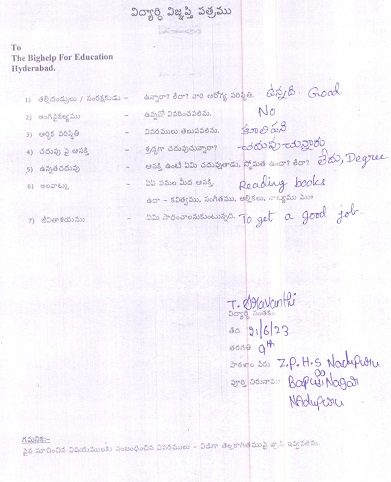 విద్యార్థి విజ్ఞప్తి పత్రము
To
The Bighelp For Education
Hyderabad.
1) తల్లిదండ్రులు / సంరక్షకుడు - ఉన్నారా? లేదా? వారి ఆరోగ్య పరిస్థితి. ఉన్నారు. Good
2) అంగవైకల్యము - ఉన్నచో వివరించవలెను. No
3) ఆర్థిక పరిస్థితి - వివరములు తెలుపవలెను. కూలి పని
4) చదువు పై ఆసక్తి - శ్రద్ధగా చదువుచున్నారా? చదువుచున్నారు
5) ఉన్నతచదువు - ఆసక్తి ఉంటే ఏమి చదువుతాడు, స్తోమత ఉందా? లేదా? లేదు, Degree
6) అలవాట్లు - ఏఏ పనుల మీద ఆసక్తి. Reading books
ఉదా - కవిత్వము, సంగీతము, ఆర్టికలు,
7) జీవితాశయము - ఏమి సాధించాలనుకుంటున్నది. To get a good job.
T. Sravanthi
విద్యార్థి సంతకం
తేది. 21/6/23
తరగతి 9th
పాఠశాల పేరు Z.P.H.S Nadupuru
పూర్తి చిరునామా Bapuji Nagar
NAdupuru
గమనిక:-
పైన సూచించిన విషయములకు సంబంధించిన వివరములు - విడిగా తెల్లకాగితముపై వ్రాసి ఇవ్వవలెను.